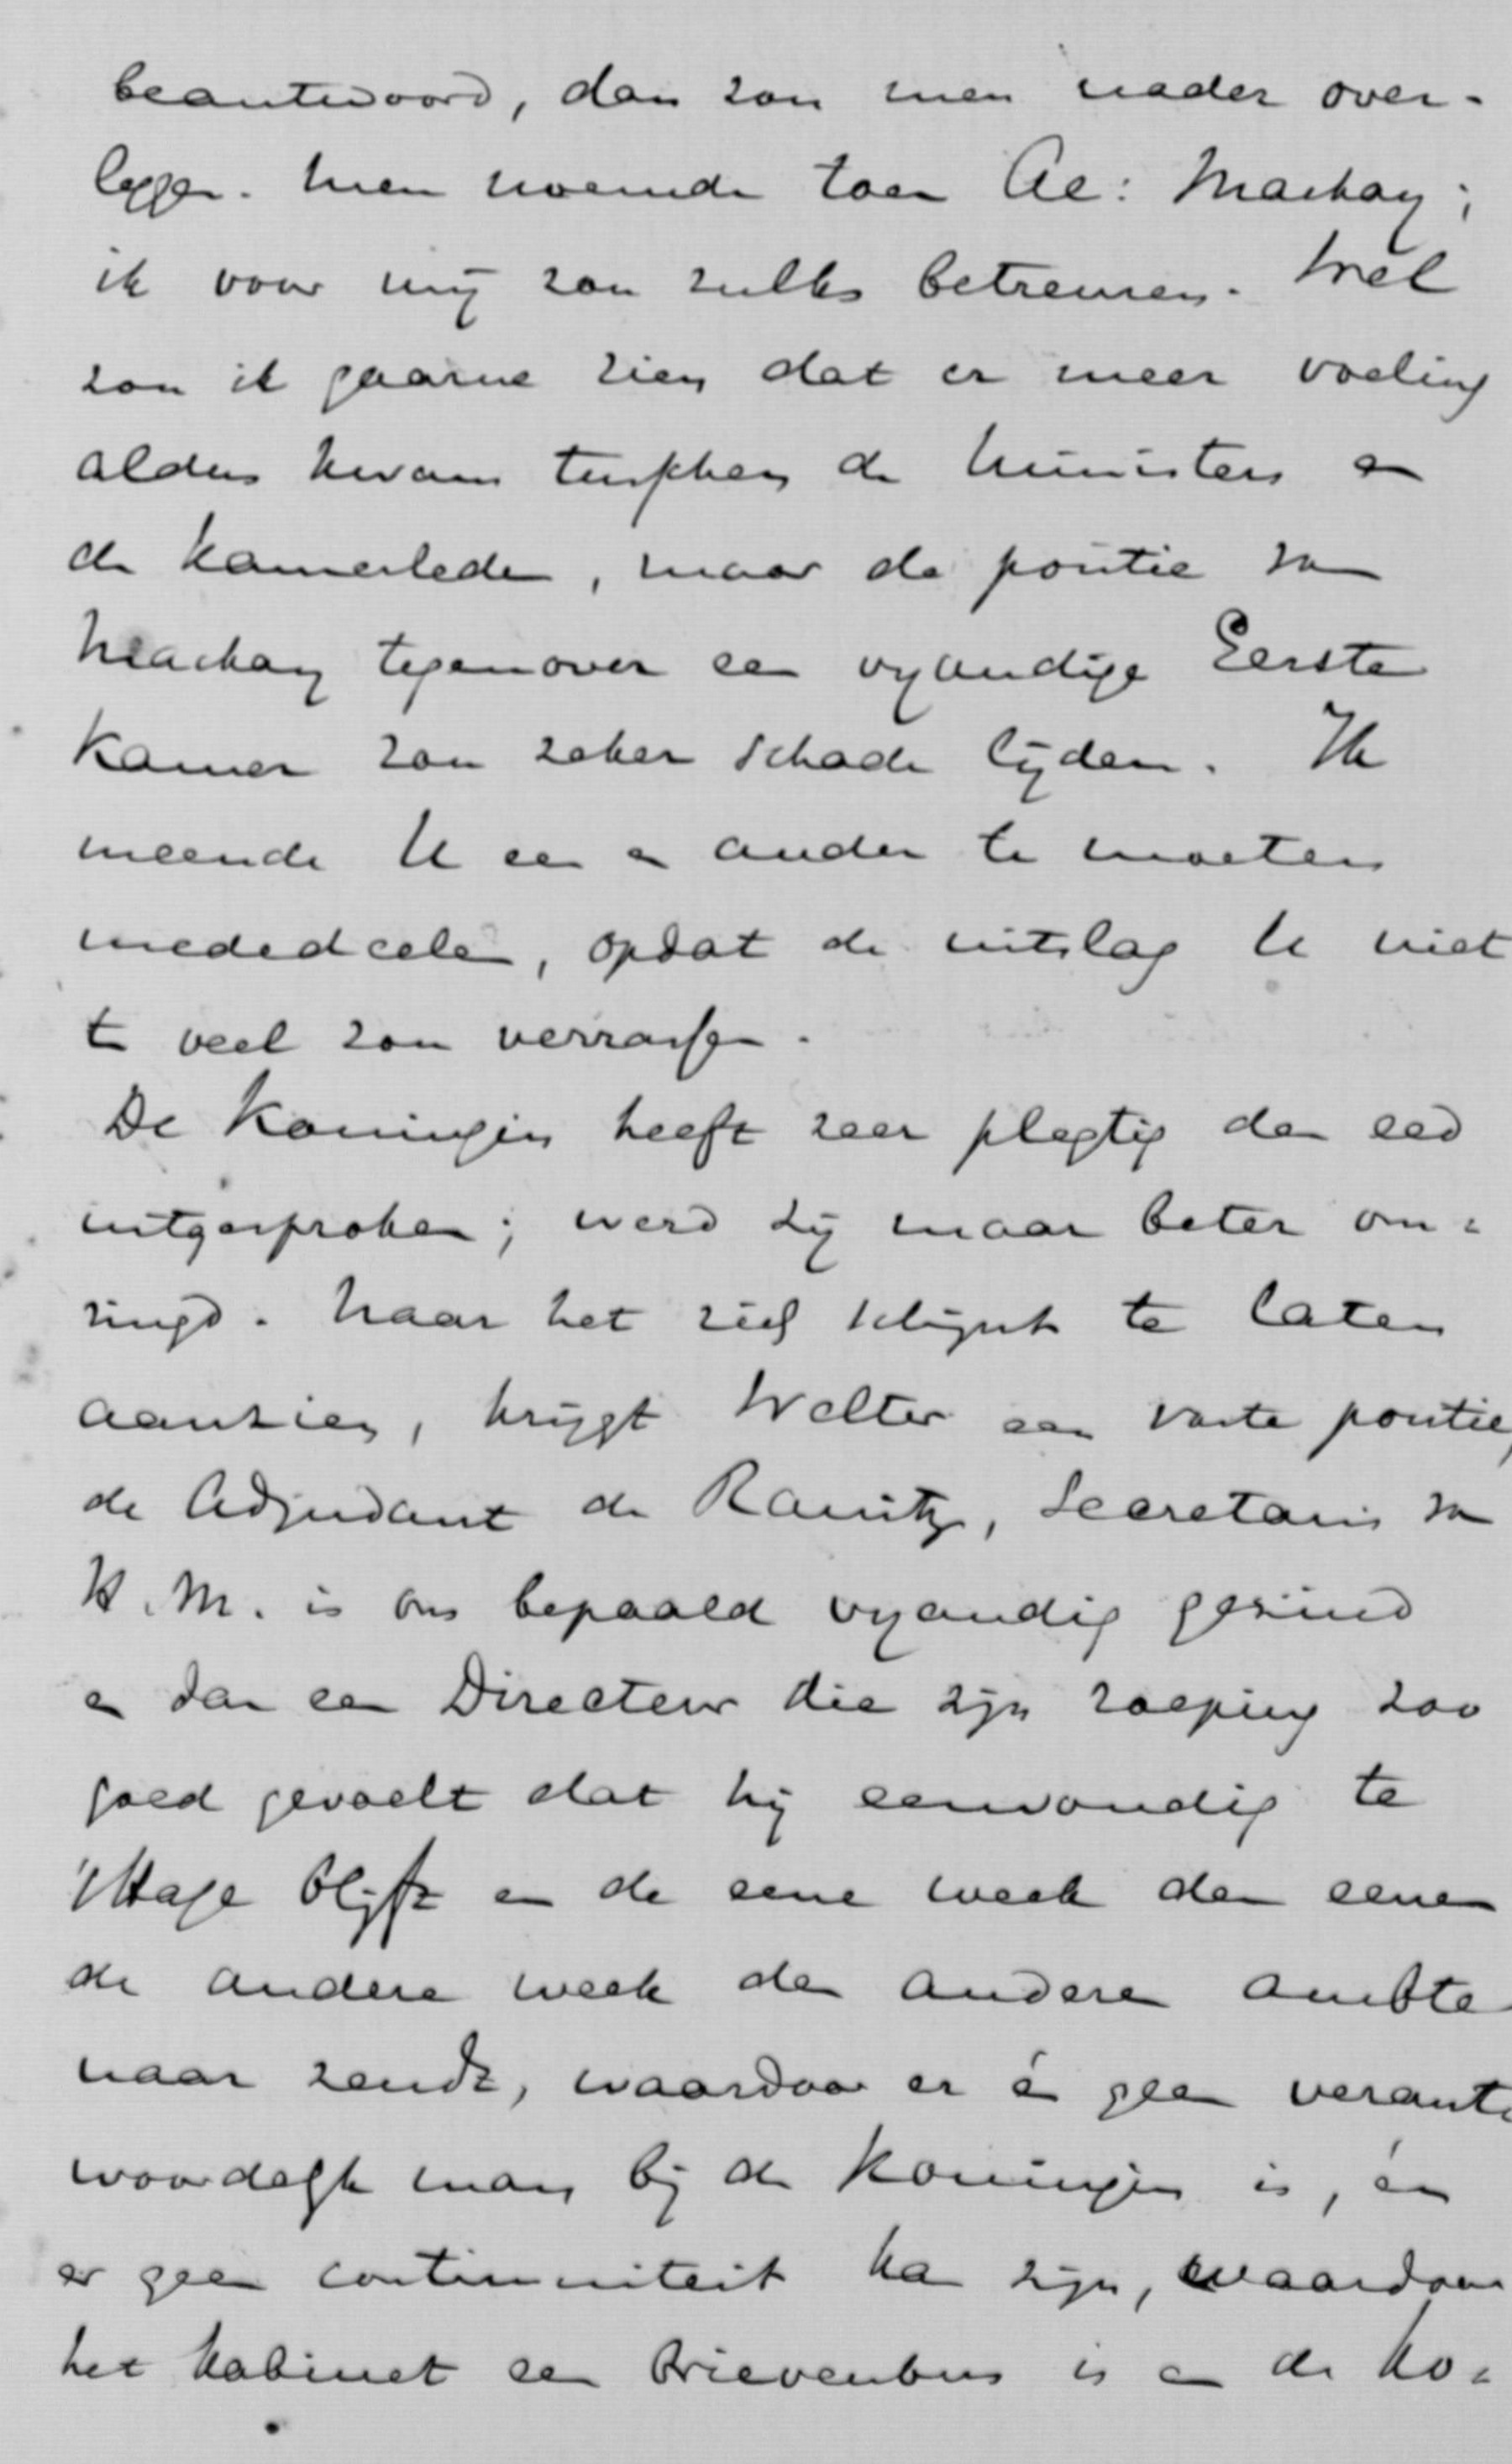 beantwoord, dan zou men nader over-
leggen. Men noemde toen Ae: Mackay;
ik voor mij zou zulks betreuren. Wel
zou ik gaarne zien dat er meer voeling
aldus kwam tusschen de Ministers en
de Kamerleden, maar de positie van
Mackay tegenover een vyandige Eerste
Kamer zou zeker schade lijden. Ik
meende U een en ander te moeten
mededeelen, opdat de uitslag U niet
te veel zou verrassen.
De Koningin heeft zeer plegtig den eed
uitgesproken; werd zij maar beter om=
ringd. Naar het zich schijnt te laten
aanzien, krijgt Walter een vaste positie,
de Adjudant de Ranitz, Secretaris van
H.M. is ons bepaald vyandig gezind
en dan een Directeur die zijn roeping zoo
goed gevoelt dat hij eenvoudig te
'sHage blijft en de eene week den eenen
de andere week den anderen ambte
naar zendt, waardoor er én geen verant=
woordelijk man bij de Koningin is, én
er geen continuiteit kan zijn, waardoor
het Kabinet een brievenbus is en de Ko=